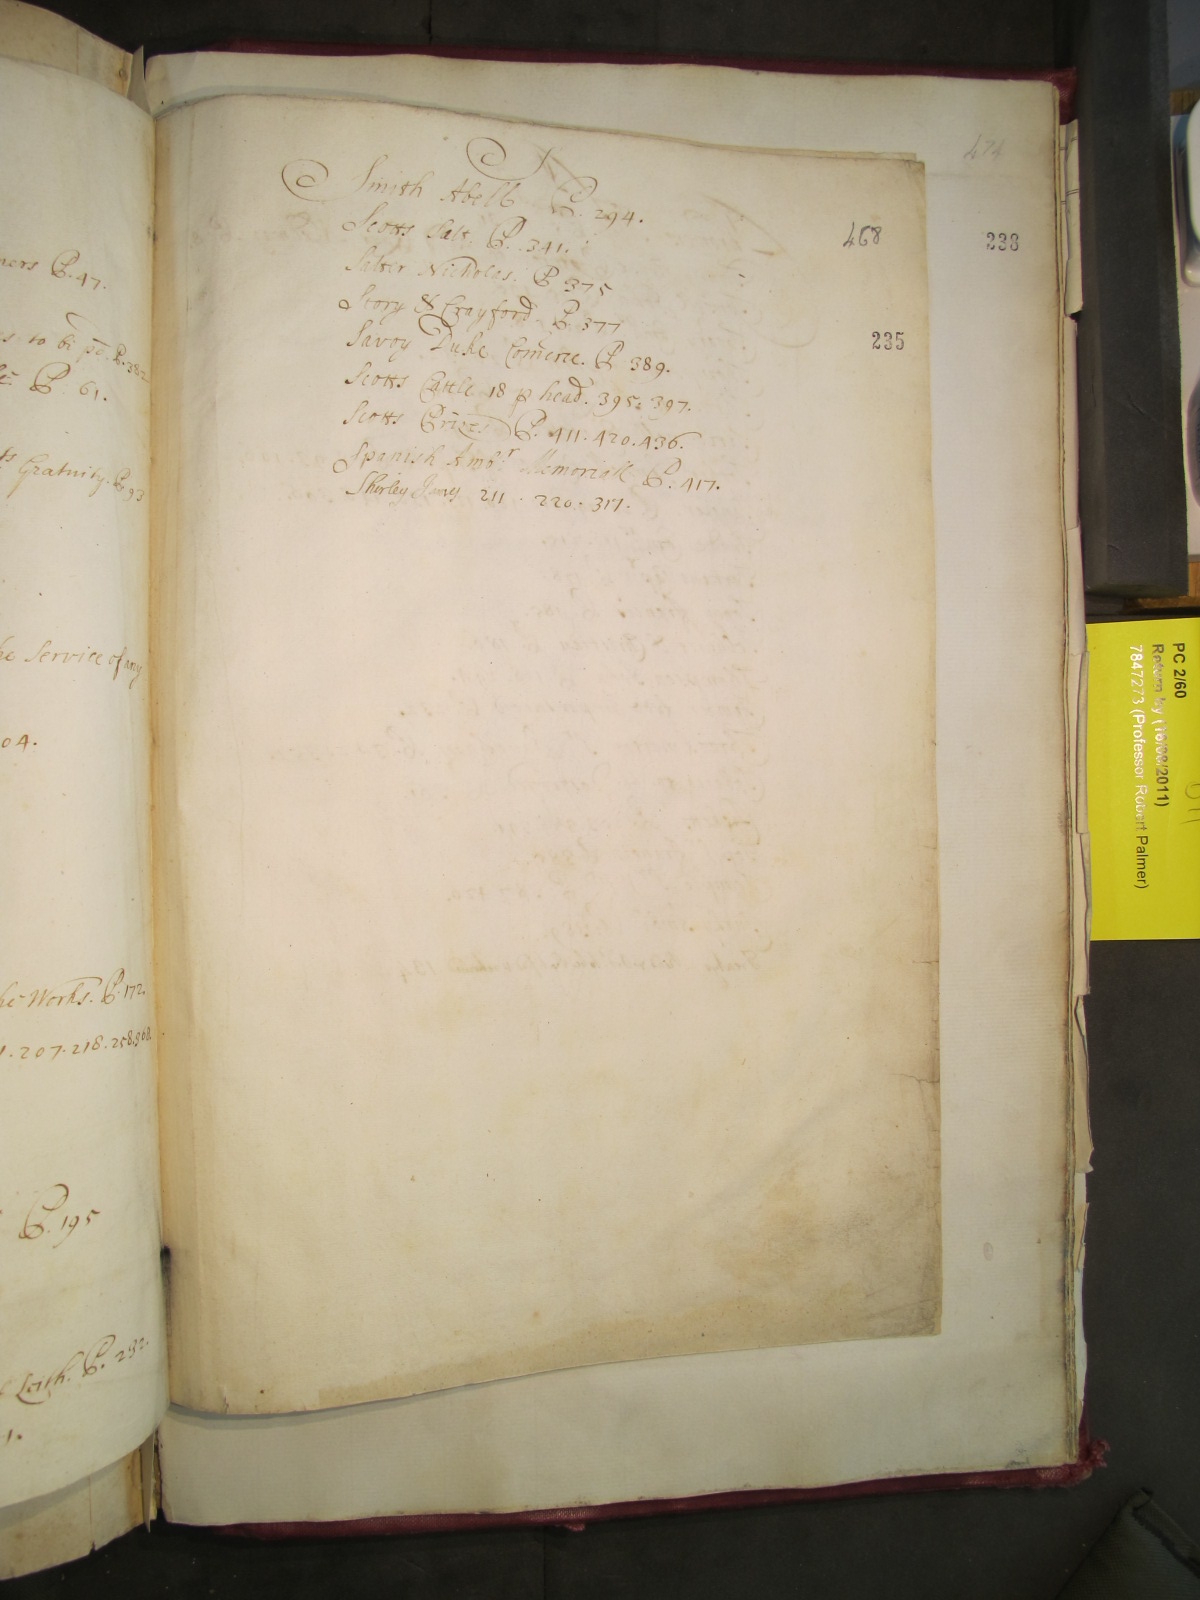 474
Smith Abell P. 294.
Scotts Salt. P. 341.
468
233
Salter Nicholas. P 375
Story & Crayford. P. 377
Savoy Duke Comerce. P 389.
235
Scotts Cattle 18 p head. 395. 397.
Scotts Prizes P. 411. 420. 436.
Spanish Ambr Memoriall P. 417.
Shirley James 211. 220. 317.
P. 47.
s to be pd P. 382
P. 61.
Gratuity. P. 93
he Service of any
04.
he Works. P. 172.
1. 207. 218. 258. 308.
P. 195
Leith. P. 232.
1.
PC 2/60
Return by (16/08/2011)
7847273 (Professor Robert Palmer)